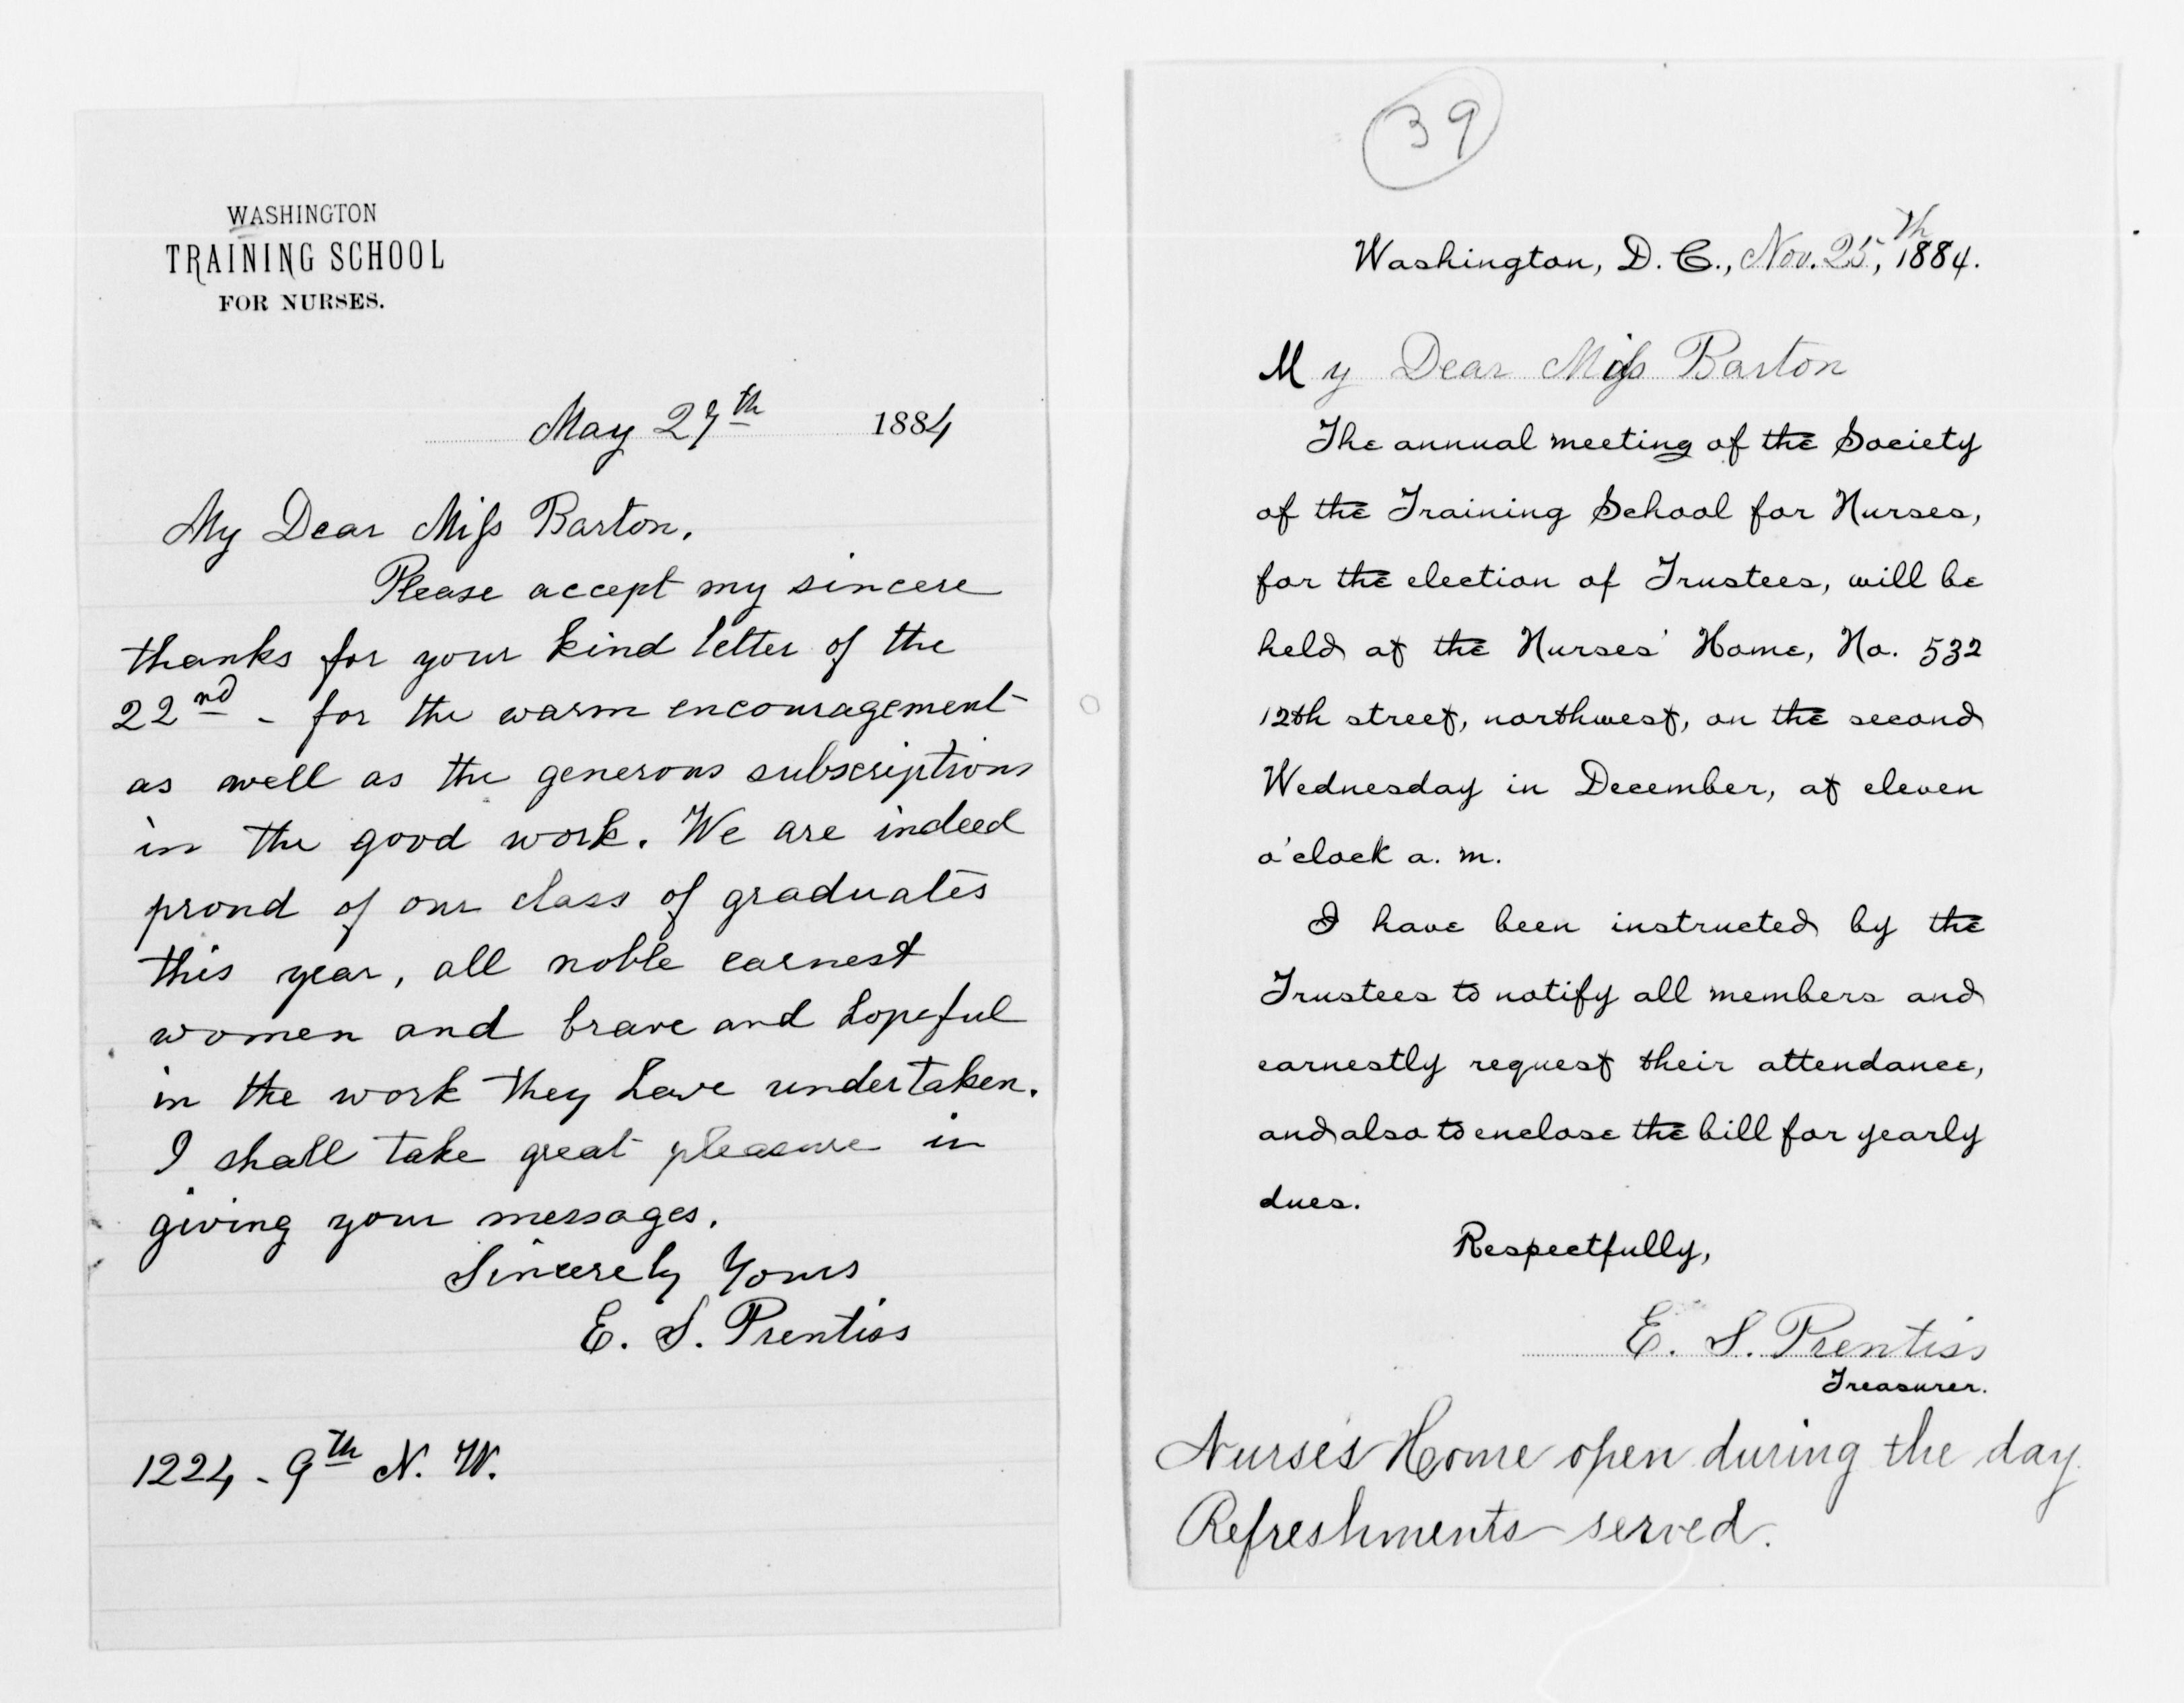 WASHINGTON
TRAINING SCHOOL
FOR NURSES.
May 27th 1884
My Dear Miss Barton.
Please accept my sincere
thanks for your kind letter of the
22nd - for the warm encouragement
as well as the generous subscriptions
in the good work. We are indeed
proud of our class of graduates
this year, all noble earnest
women and brave and hopeful
in the work they have undertaken.
I shall take great pleasure in
giving your messages.
Sincerely Yours
E. S. Prentiss
1224 - 9th N. W.
39
Washington, D. C., Nov. 25th, 1884.
My Dear Miss Barton
The annual meeting of the Society
of the Training School for Nurses,
for the election of Trustees, will be
held at the Nurses' Home, No. 532
12th street, northwest, on the second
Wednesday in December, at eleven
o'clock a. m.
I have been instructed by the
Trustees to notify all members and
earnestly request their attendance,
and also to enclose the bill for yearly
dues.
Respectfully,
E. S. Prentiss
Treasurer.
Nurses Home open during the day.
Refreshments served.